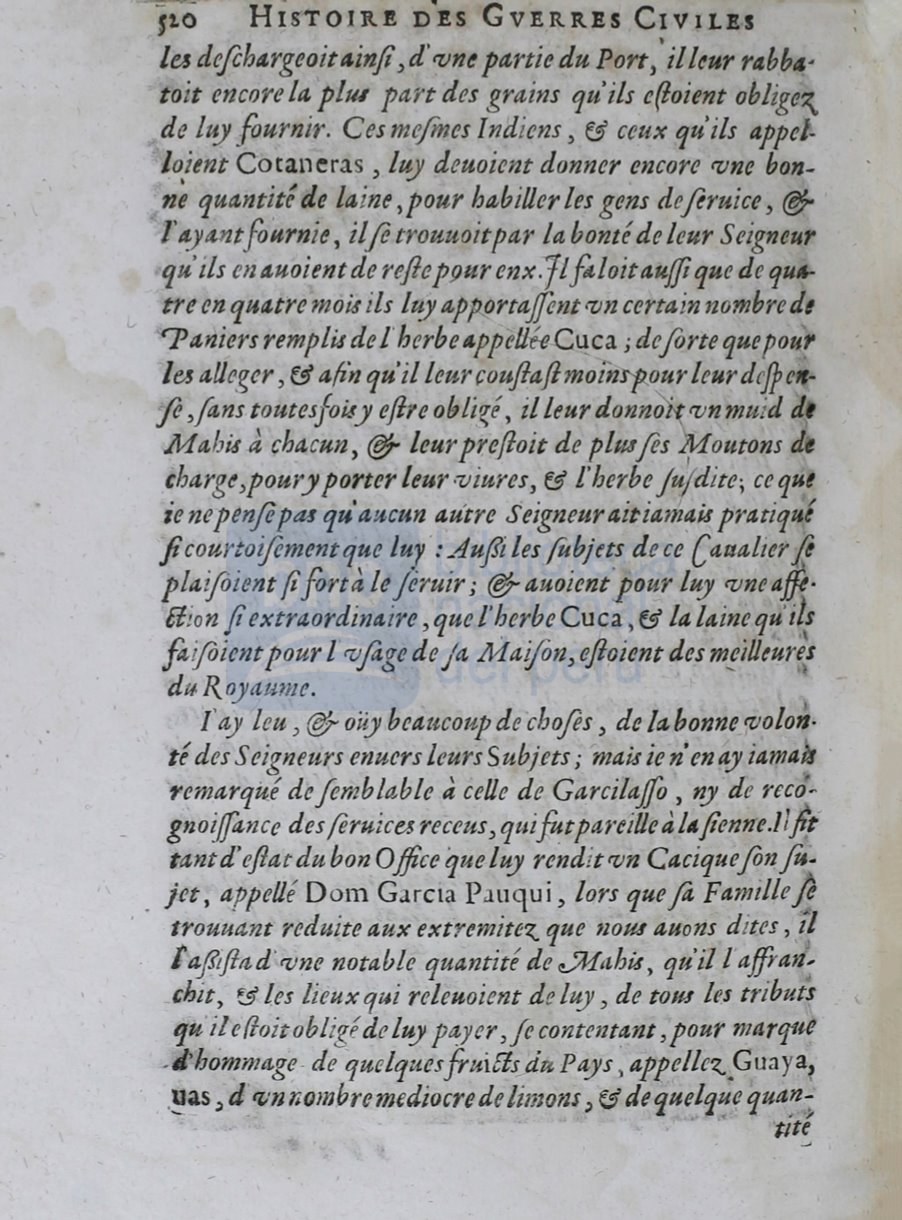 520 HISTOIRE DES GVERRES CIVILES
les deſchargeoit ainſi, d'vne partie du Port, il leur rabba-
toit encore la plus part des grains qu'ils eſtoient obligez
de luy fournir. Ces meſmes Indiens, & ceux qu'ils appel-
loient Cotaneras, luy deuoient donner encore vne bon-
ne quantité de laine, pour habiller les gens de ſeruice, &
l'ayant fournie, il ſe trouuoit par la bonté de leur Seigneur
qu'ils en auoient de reſte pour enx. Il faloit auſſi que de qua-
tre en quatre mois ils luy apportaſſent vn certain nombre de
Paniers remplis de l'herbe appellée Cuca; de ſorte que pour
les alleger, & afin qu'il leur couſtaſt moins pour leur deſpen-
ſe, ſans toutesfois y eſtre obligé, il leur donnoit vn muid de
Mahis à chacun, & leur preſtoit de plus ſes Moutons de
charge, pour y porter leur viures, & l'herbe ſuſdite; ce que
ie ne penſe pas qu'aucun autre Seigneur ait iamais pratiqué
ſi courtoiſement que luy : Außi les ſubjets de ce Caualier ſe
plaiſoient ſi fort à le ſeruir; & auoient pour luy vne affe-
ction ſi extraordinaire, que l'herbe Cuca, & la laine qu'ils
faiſoient pour l'vſage de ſa Maiſon, eſtoient des meilleures
du Royaume.
I'ay leu, & oüy beaucoup de choſes, de la bonne volon-
té des Seigneurs enuers leurs Subjets; mais ie n'en ay iamais
remarqué de ſemblable à celle de Garcilaſſo, ny de reco-
gnoiſſance des ſeruices receus, qui fut pareille à la ſienne. Il fit
tant d'eſtat du bon Office que luy rendit vn Cacique ſon ſu-
jet, appellé Dom Garcia Pauqui, lors que ſa Famille ſe
trouuant reduite aux extremitez que nous auons dites, il
l'aßiſta d'vne notable quantité de Mahis, qu'il l'affran-
chit, & les lieux qui releuoient de luy, de tous les tributs
qu'il eſtoit obligé de luy payer, ſe contentant, pour marque
d'hommage de quelques fruicts du Pays, appellez Guaya,
uas, d'vn nombre mediocre de limons, & de quelque quan-
tité
biblioteca
nacional
del perú